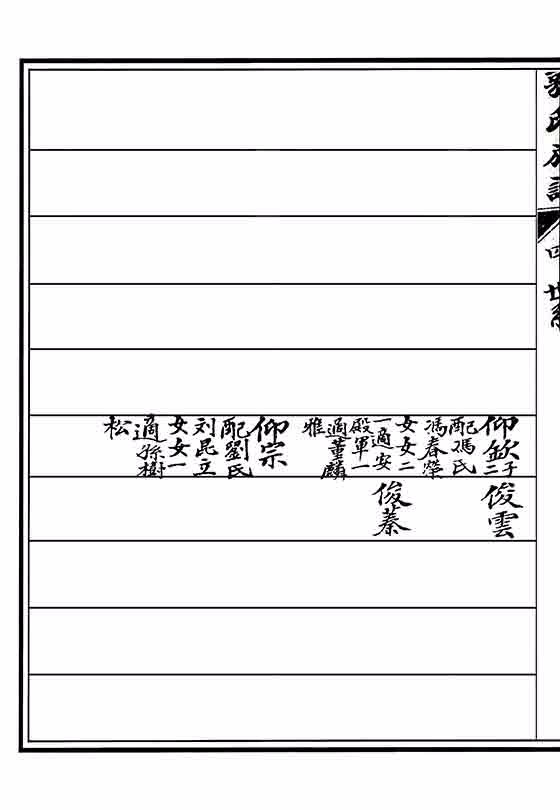 氏族譜
四
世系
仰欽子二
配馮氏
馮春榮
女女二
一適安
殿軍一
適董麟
雅
仰宗
配劉氏
刘昆立
女女一
適孫樹
松
俊雲
俊蓁